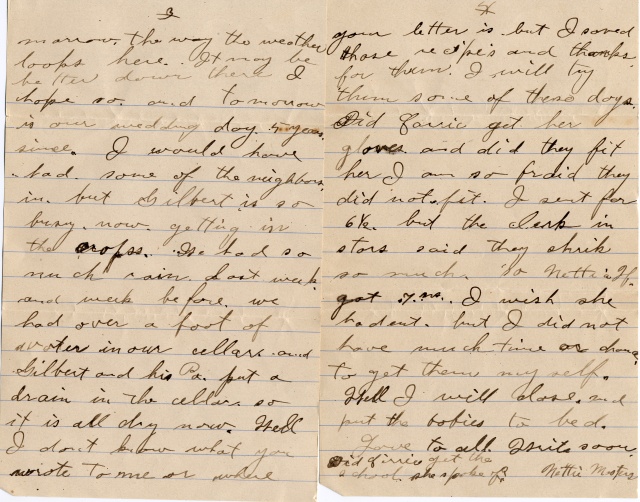 3
morrow. the way the weather
loops here. It may be
better down there I
hope so. and tomorrow
is our wedding day. 5 years
since. I would have
had some of the neighbors
in. but Gilbert is so
busy. now. getting in
the crops. We had so
much rain. Last week
and week before. we
had over a foot of
woter in our cellar. and
Gilbert and his Pa. put a
drain in the cellar so
it is all dry now. Well
I dont know what you
wrote to me or where
4
your letter is. but I saved
those recipe's and thanks.
for them. I will try
them some of these days.
Did Carrie get her
gloves. and did they fit
her I am so fraid they
did not fit. I sent for
6½. but the clerk in
stors said they shrik
so much. So Nettie
got 7.ns. I wish she
hadent. but I did not
have much time or chance
to get them my self.
Well I will close. and
put the babies to bed.
Love to all Write soon.
Did get the
school. she spoke of? Nettie